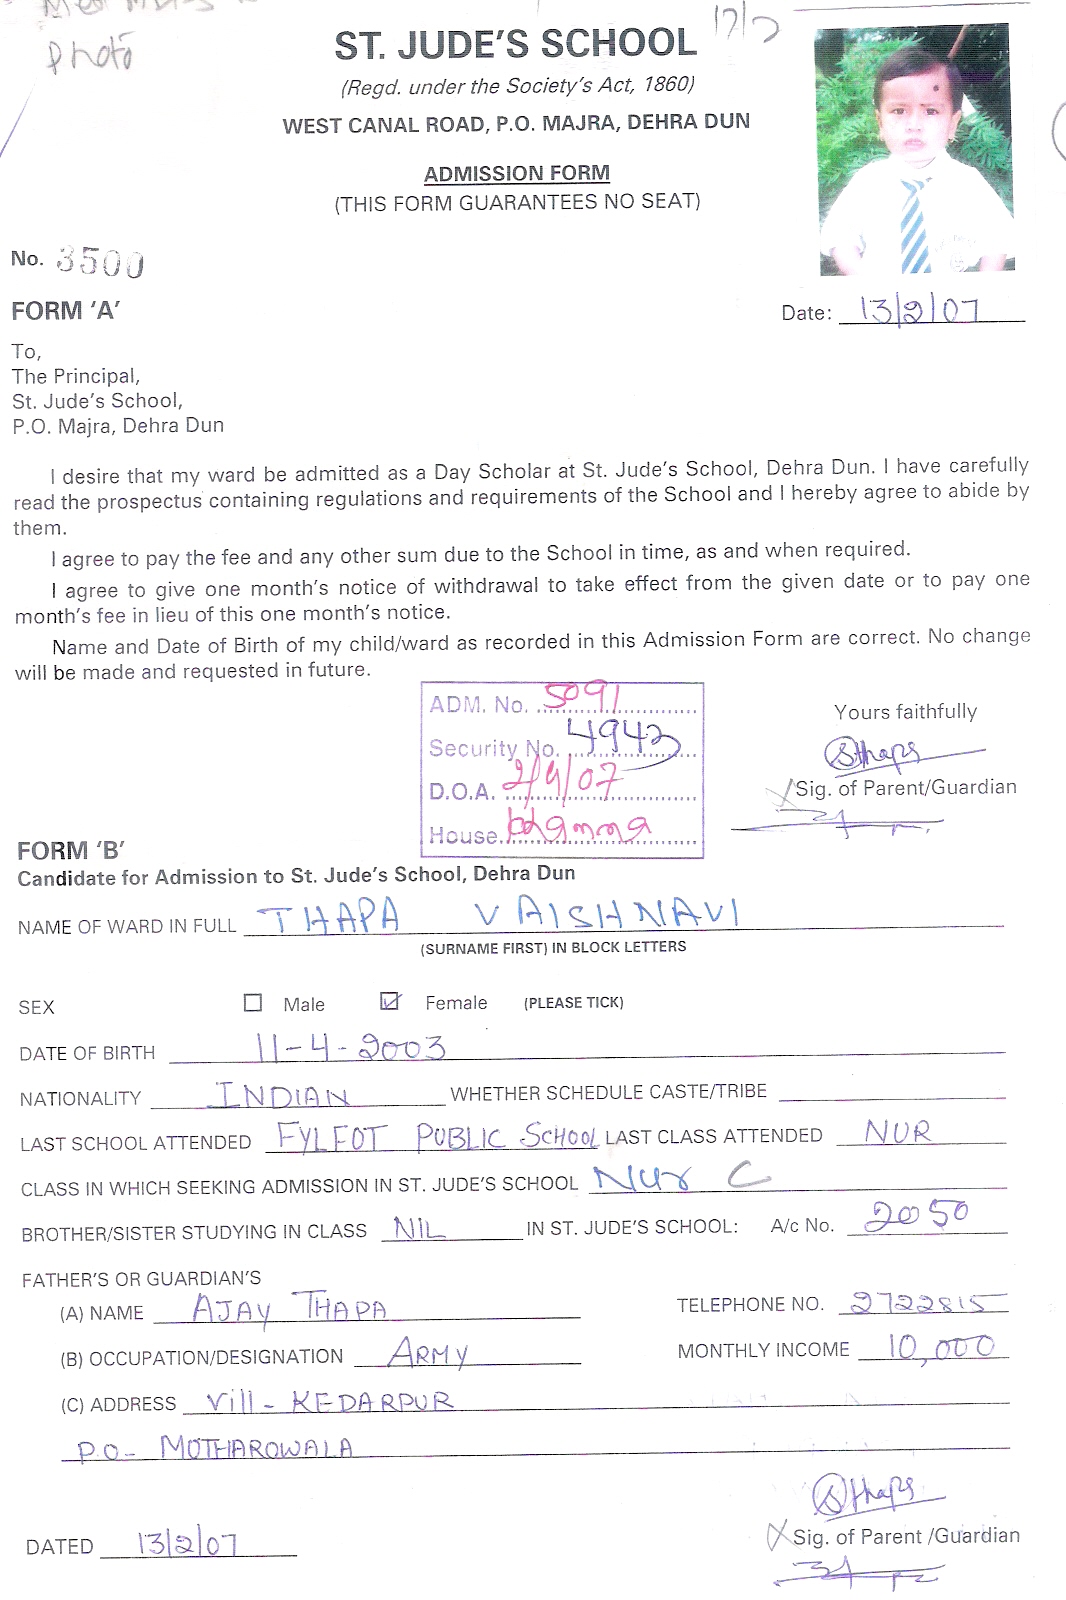 Photo
17/2
ST. JUDE'S SCHOOL
(Regd. under the Society's Act, 1860)
WEST CANAL ROAD, P.O. MAJRA, DEHRA DUN
ADMISSION FORM
(THIS FORM GUARANTEES NO SEAT)
No. 3500
FORM 'A'
Date: 13/2/07
To,
The Principal,
St. Jude's School,
P.O. Majra, Dehra Dun
I desire that my ward be admitted as a Day Scholar at St. Jude's School, Dehra Dun. I have carefully
read the prospectus containing regulations and requirements of the School and I hereby agree to abide by
them.
I agree to pay the fee and any other sum due to the School in time, as and when required.
I agree to give one month's notice of withdrawal to take effect from the given date or to pay one
month's fee in lieu of this one month's notice.
Name and Date of Birth of my child/ward as recorded in this Admission Form are correct. No change
will be made and requested in future.
ADM. No. 5091
Security No. 4943
D.O.A. 2/4/07
House.
Yours faithfully
SThapa
Sig. of Parent/Guardian
FORM 'B'
Candidate for Admission to St. Jude's School, Dehra Dun
NAME OF WARD IN FULL THAPA VAISHNAVI
(SURNAME FIRST) IN BLOCK LETTERS
SEX Male Female (PLEASE TICK)
DATE OF BIRTH 11-4-2003
NATIONALITY INDIAN WHETHER SCHEDULE CASTE/TRIBE
LAST SCHOOL ATTENDED FYLFOT PUBLIC SCHOOL LAST CLASS ATTENDED NUR
CLASS IN WHICH SEEKING ADMISSION IN ST. JUDE'S SCHOOL Nur C
BROTHER/SISTER STUDYING IN CLASS NIL IN ST. JUDE'S SCHOOL: A/c No. 2050
FATHER'S OR GUARDIAN'S
(A) NAME AJAY THAPA TELEPHONE NO. 2722815
(B) OCCUPATION/DESIGNATION ARMY MONTHLY INCOME 10,000
(C) ADDRESS Vill- KEDARPUR
P.O- MOTHAROWALA
SThapa
DATED 13/2/07 Sig. of Parent /Guardian